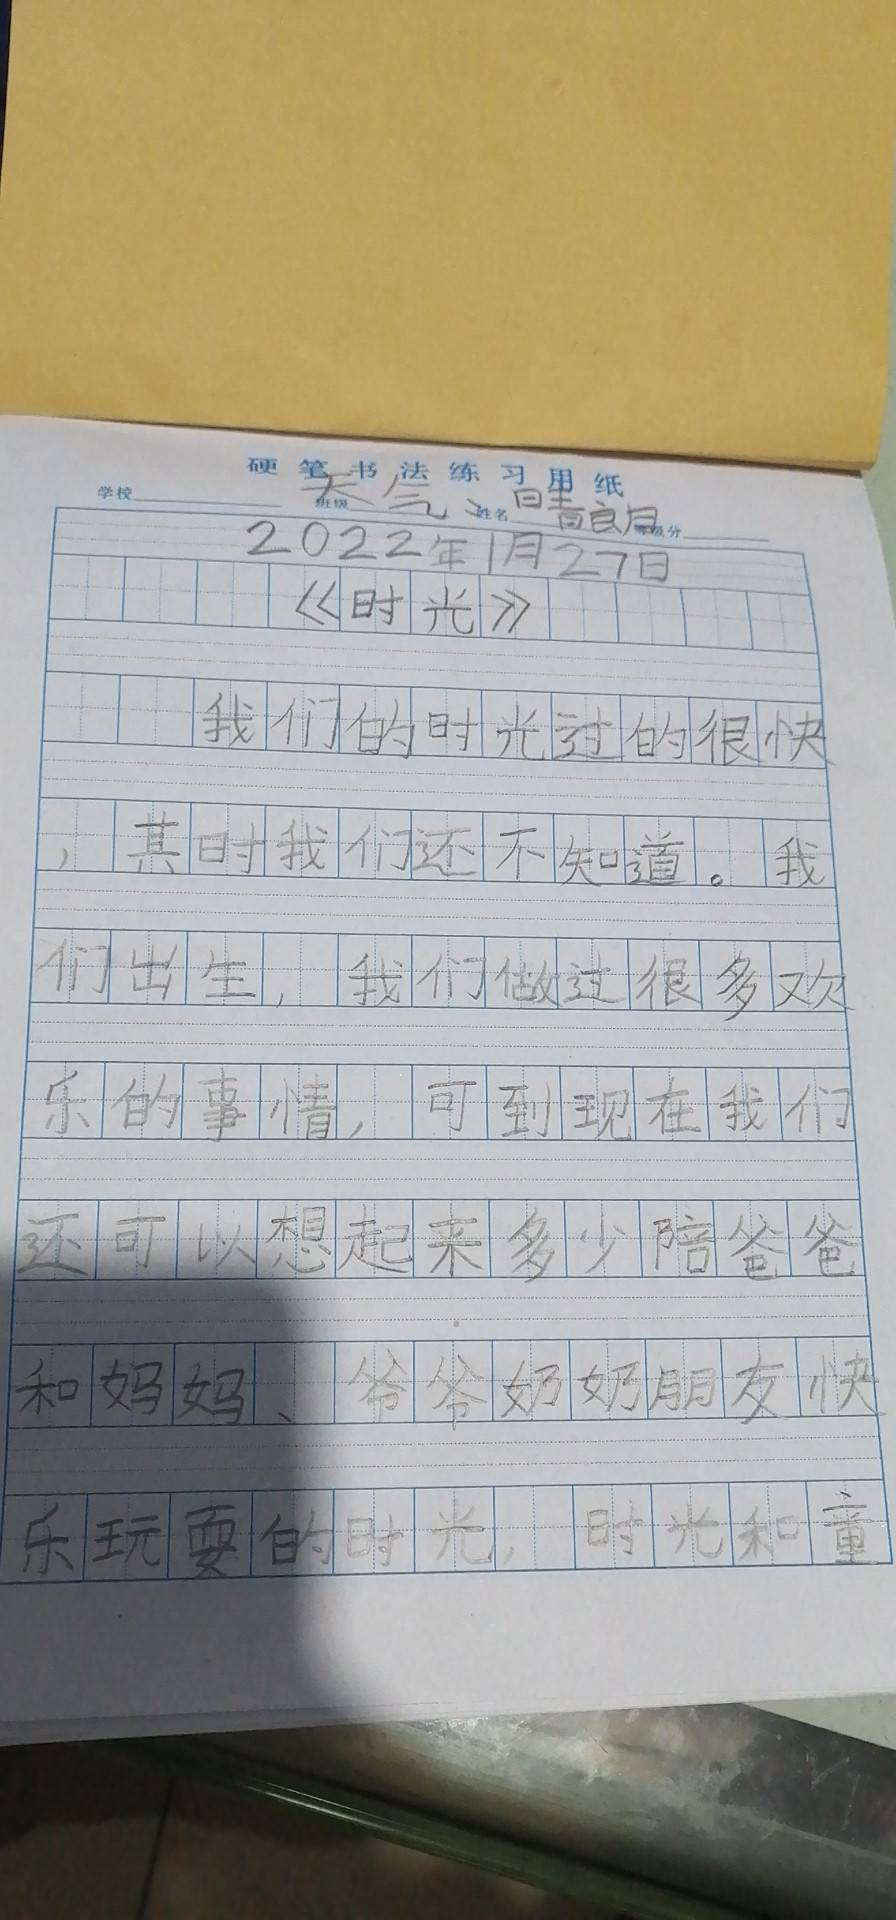 硬笔书法练习用纸
学校 班级 姓名 等级分
天气：晴朗
2022年1月27日
《时光》
我们的时光过的很快
，其时我们还不知道。我
们出生，我们做过很多欢
乐的事情，可到现在我们
还可以想起来多少陪爸爸
和妈妈、爷爷奶奶朋友快
乐玩耍的时光，时光和童